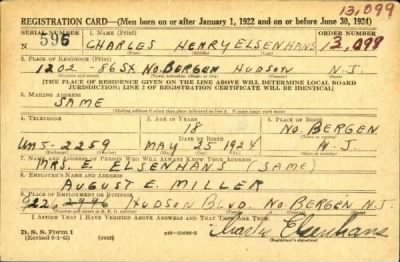 13,099
REGISTRATION CARD—(Men born on or after January 1, 1922 and on or before June 30, 1924)
SERIAL NUMBER 1. NAME (Print) ORDER NUMBER
N 596 CHARLES HENRY ELSENHANS 13,099
2. PLACE OF RESIDENCE (Print)
1202 - 86 ST. NO. BERGEN HUDSON N.J.
[THE PLACE OF RESIDENCE GIVEN ON THE LINE ABOVE WILL DETERMINE LOCAL BOARD
JURISDICTION; LINE 2 OF REGISTRATION CERTIFICATE WILL BE IDENTICAL]
3. MAILING ADDRESS
SAME
4. TELEPHONE 5. AGE IN YEARS 6. PLACE OF BIRTH
18 NO. BERGEN
DATE OF BIRTH
UN5-2259 MAY 25 1924 N.J.
7. NAME AND ADDRESS OF PERSON WHO WILL ALWAYS KNOW YOUR ADDRESS
MRS. E. ELSENHANS (SAME)
8. EMPLOYER'S NAME AND ADDRESS
AUGUST E. MILLER
9. PLACE OF EMPLOYMENT OR BUSINESS
9226 HUDSON BLVD. NO. BERGEN N.J.
I AFFIRM THAT I HAVE VERIFIED ABOVE ANSWERS AND THAT THEY ARE TRUE.
D. S. S. Form 1 Charles Elsenhans